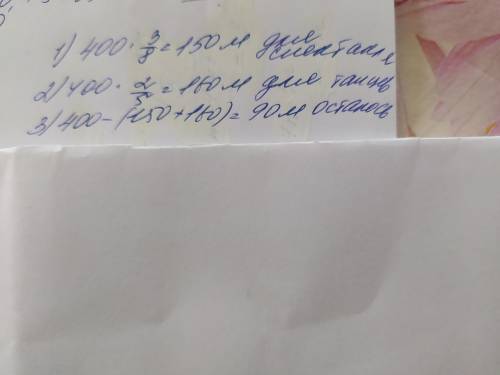 1) 400 · 3/8 = 150 м для спектакля
2) 400 · 2/5 = 160 м для танцев
3) 400 - (150 + 160) = 90 м осталось